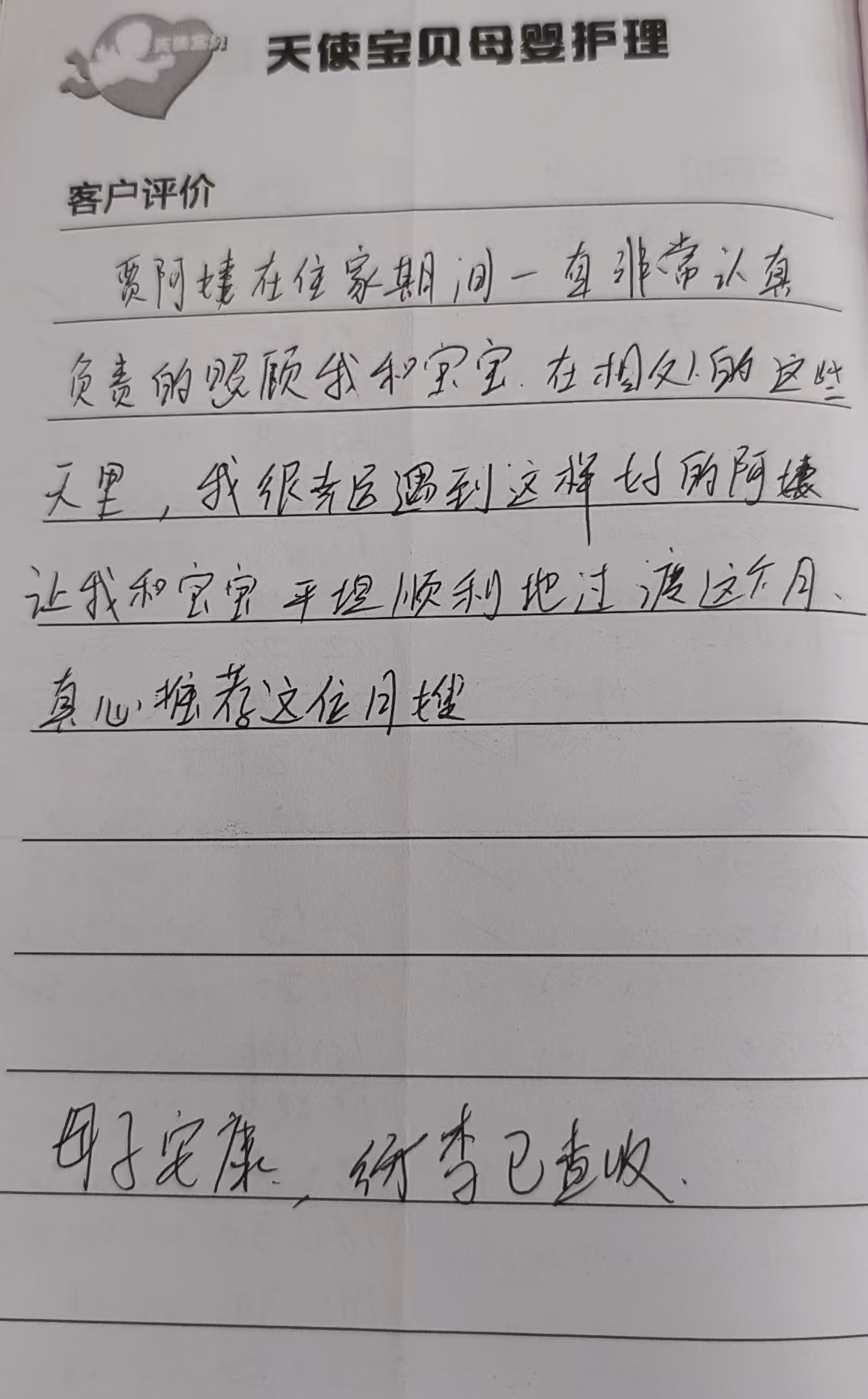 天使宝贝
天使宝贝母婴护理
客户评价
贾阿姨在住家期间一直非常认真
负责的照顾我和宝宝.在相处的这些
天里,我很幸运遇到这样好的阿姨
让我和宝宝平坦顺利地过渡这个月、
真心推荐这位月嫂
母子安康,行李已查收.